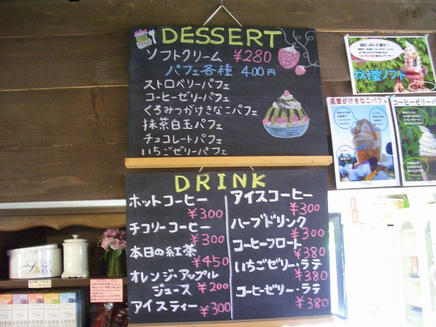 DESSERT
ソフトクリーム ¥280
パフェ各種 400円
ストロベリーパフェ
コーヒーゼリーパフェ
くろみつかけきなこパフェ
抹茶白玉パフェ
チョコレートパフェ
いちごゼリーパフェ
DRINK
ホットコーヒー
¥300
チコリーコーヒー
¥300
本日の紅茶
¥450
オレンジ・アップル
ジュース ¥200
アイスティー ¥300
アイスコーヒー
¥300
ハーブドリンク
¥300
コーヒーフロート
¥380
いちごゼリー・ラテ
¥380
コーヒーゼリー・ラテ
¥380
黒蜜がけきなこパフェ
コーヒーゼリーパ